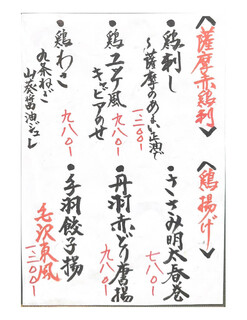 〈薩摩赤鶏刺〉
・鶏刺し
〜薩摩のあまい正油で
一二〇〇-
・鶏ユッケ風
キャビアのせ
九八〇-
・鶏わさ
九条ねぎ
山葵醤油ジュレ
九八〇-
〈鶏揚げ〉
・ささみ明太春巻
七八〇-
・丹羽赤どり唐揚
九八〇-
・手羽餃子揚
毛沢東風
一三〇〇-